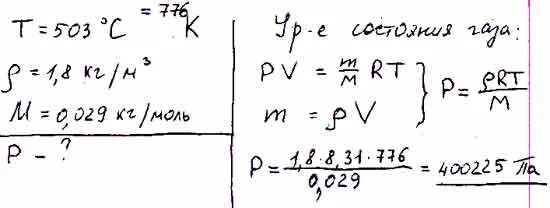 T = 503 °C = 776 K
ρ = 1,8 кг/м³
M = 0,029 кг/моль
P - ?
Ур-е состояния газа:
PV = m/M RT
m = ρV
} P = ρRT/M
P = 1,8·8,31·776/0,029 = 400225 Па